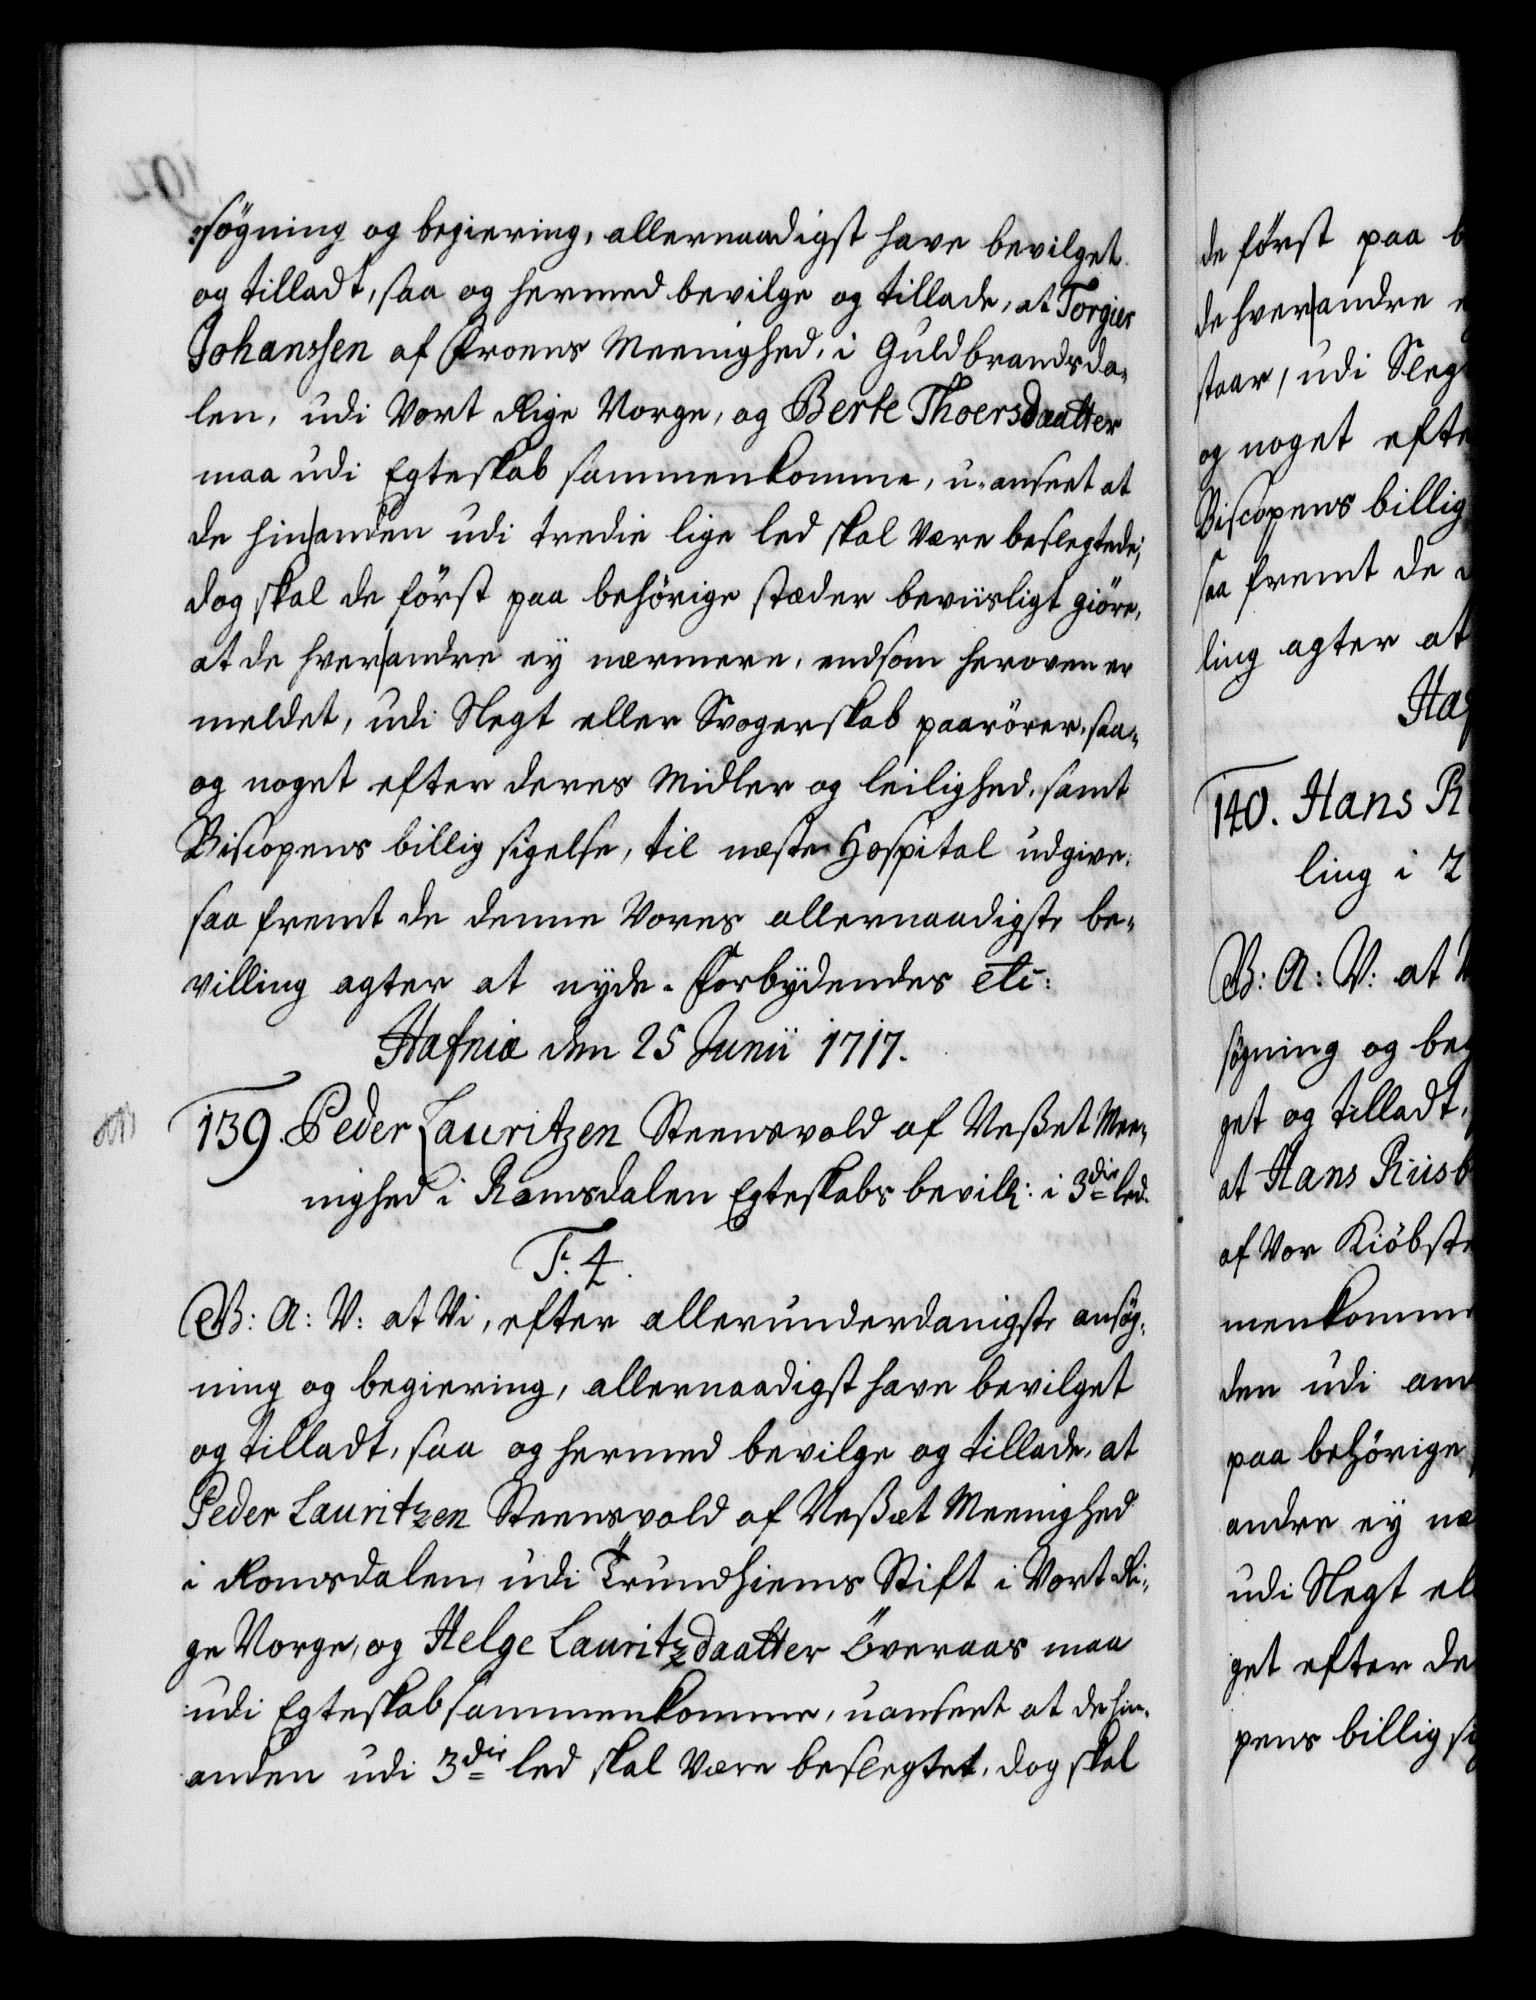 søgning og begiering, allernaadigst have bevilget
og tilladt, saa og hermed bevilge og tillade, at Torgier
Johanssen af Froens Meenighed, i Guldbrandsda-
len, udi Vort Rige Norge, og Berte Thoersdaatter
maa udi Egteskab sammenkomme, u-anseet at
de hinanden udi tredie lige led skal være beslegtede;
dog skal de först paa behörige stæder beviisligt giöre,
at de hverandre ey nærmere, endsom heroven er
meldet, udi Slegt eller Svogerskab paarörer, saa-
og noget efter deres Midler og leilighed, samt
Biscopens billig sigelse, til næste Hospital udgive,
saa fremt de denne Vores allernaadigste be-
villing agter at nyde. Forbydendes etc:
Hafniæ den 25 Junii 1717.
139. Peder Lauritzen Steensvold af Veßet Mee-
nighed i Romsdalen Egteskabs bevill: i 3die led.
F. 4.
G: A: V: at Vi, efter allerunderdanigste ansøg-
ning og begiering, allernaadigst have bevilget
og tilladt, saa og hermed bevilge og tillade, at
Peder Lauritzen Steensvold af Veßet Meenighed
i Romsdalen, udi Trundhiems Stift i Vort Ri-
ge Norge, og Helge Lauritzdaatter Överaas maa
udi Egteskab sammenkomme, uanseet at de hin-
anden udi 3die led skal være beslegtet, dog skal
de först paa
de hverandre
staar, udi Sleg
og noget efte
Biscopens billig
saa fremt de
ling agter at
Haf
140. Hans R
ling i 2
G: A: V: at
søgning og beg
get og tilladt,
at Hans Riisb
af Vor Kiöbste
menkomme
den udi and
paa behörige
andre ey næ
udi Slegt el
get efter de
pens billig si